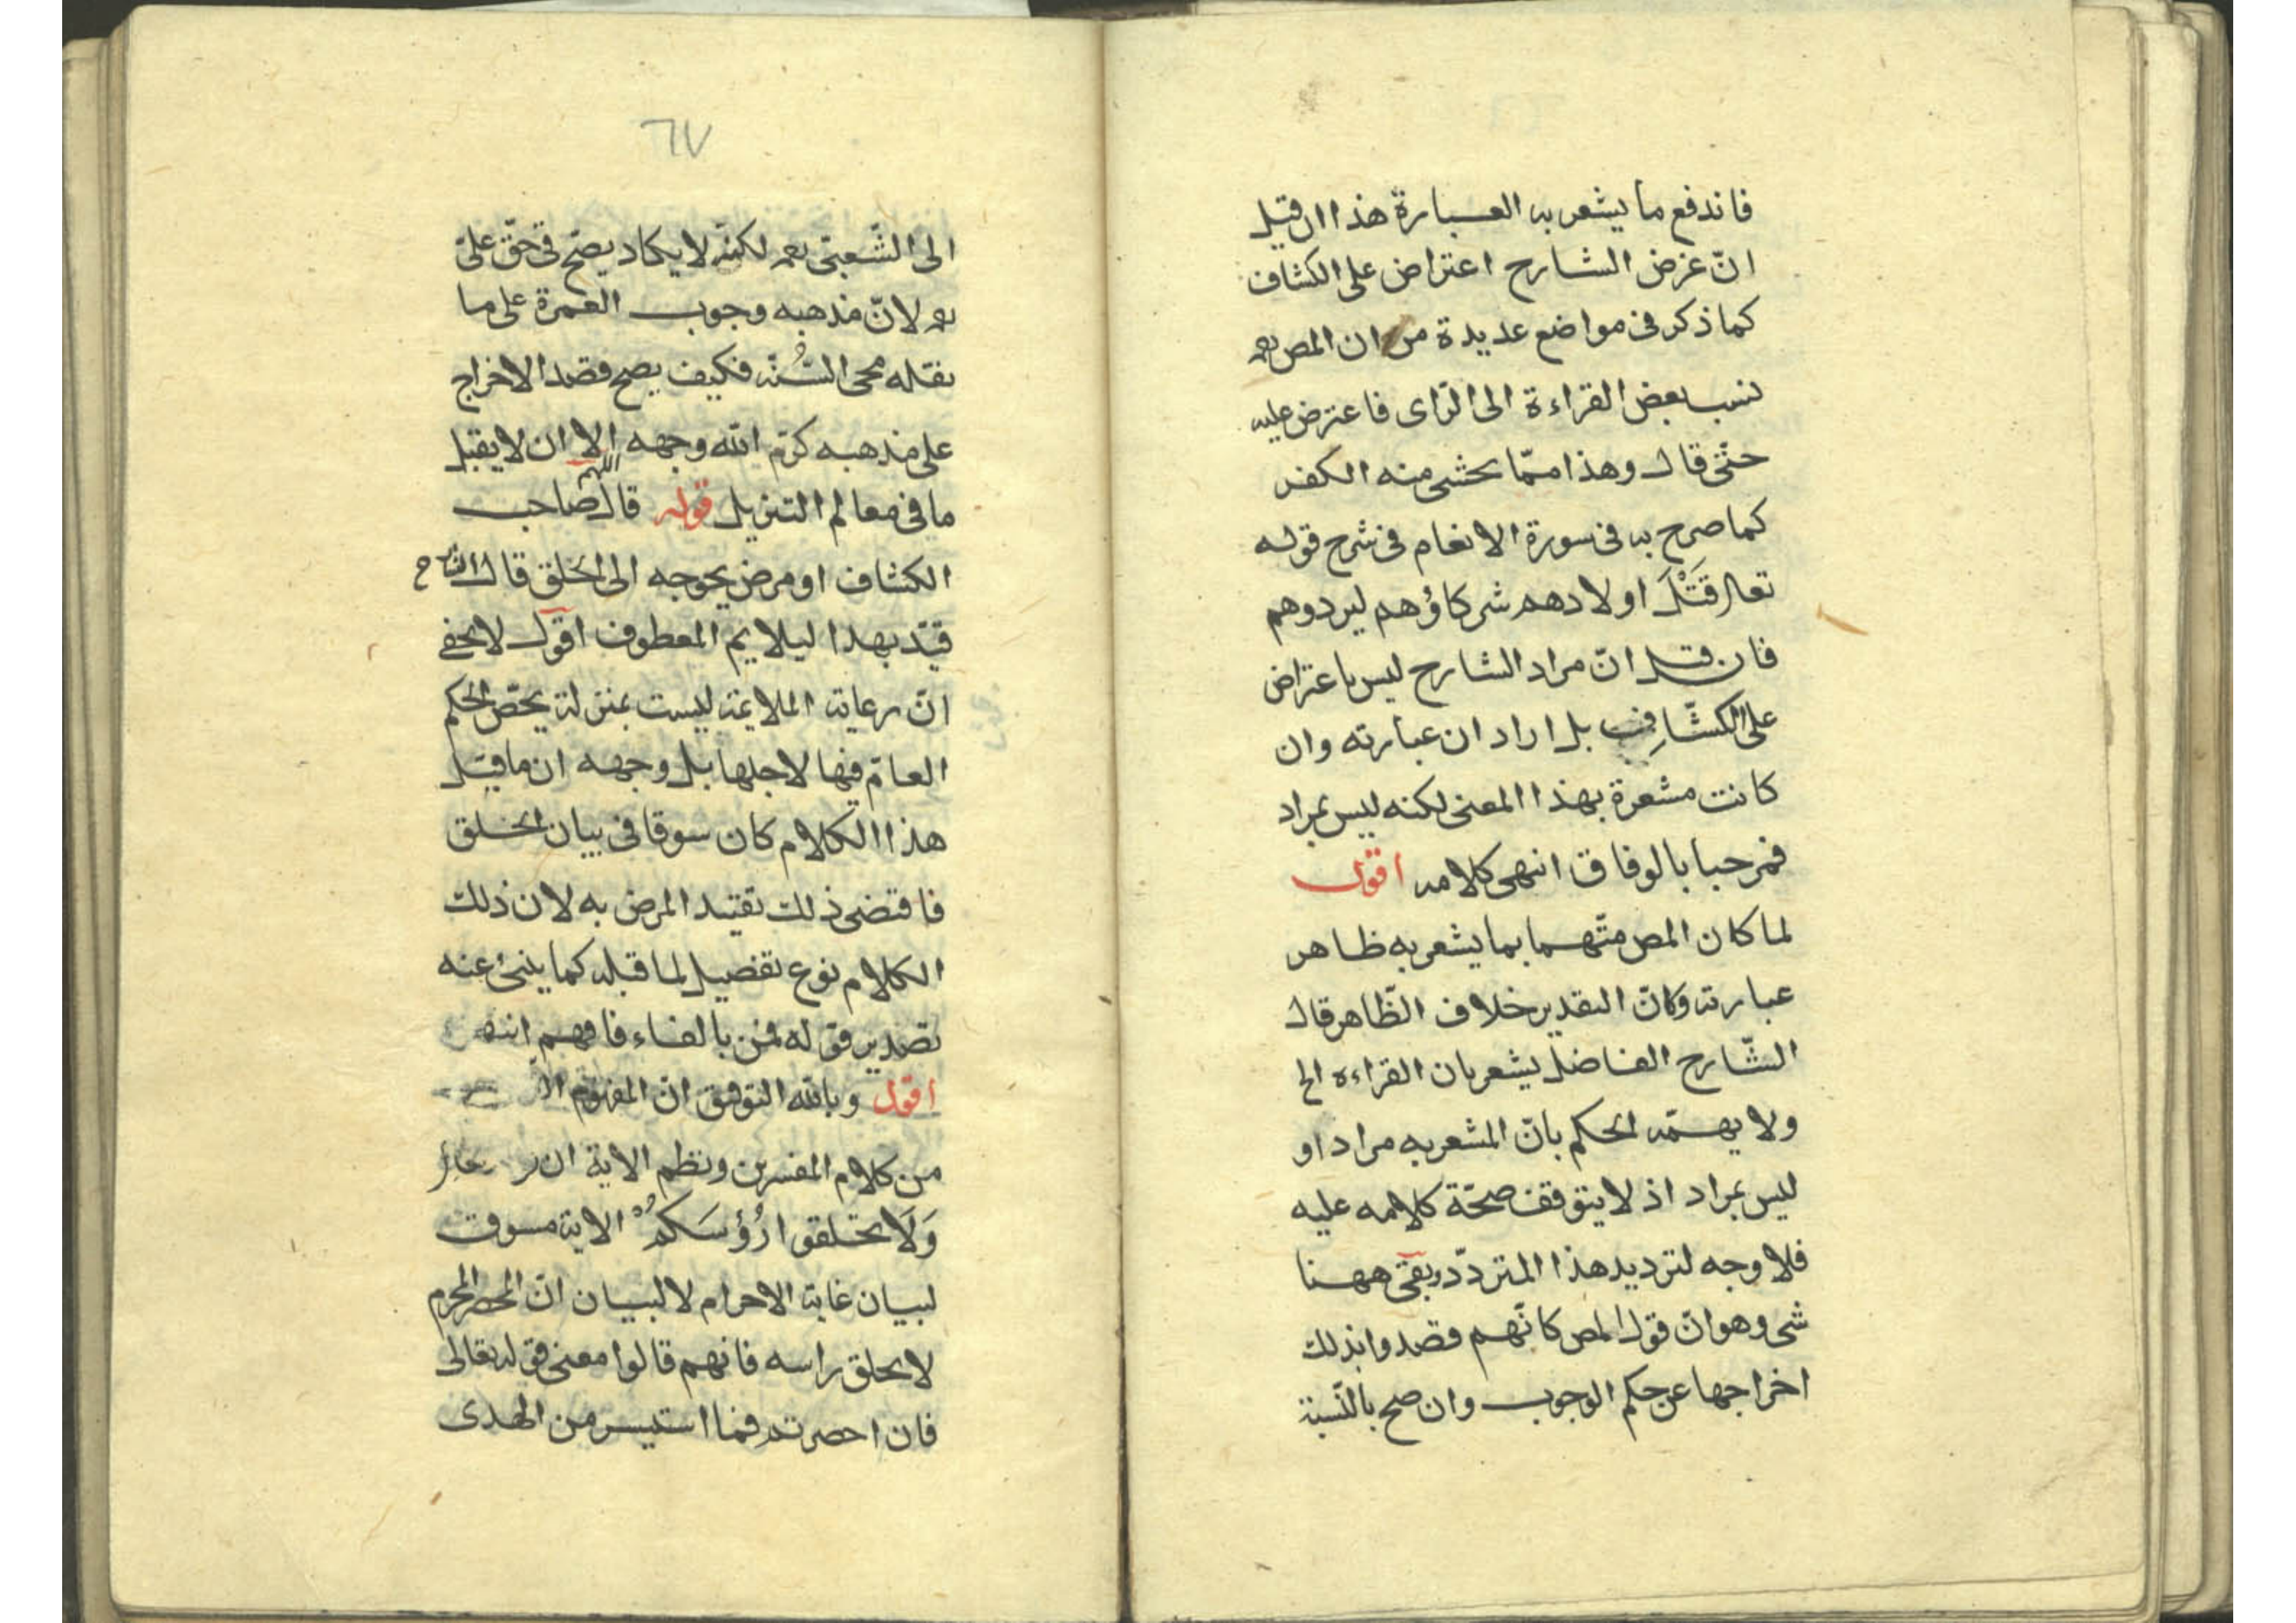 فاندفع ما يشعر به العبارة هذا ان قيل
انّ غرض الشارح اعتراض على الكشاف
كما ذكر فى مواضع عديدة من ان المص
نسب بعض القراءة الى الرّاى فاعترض عليه
حتّى قال وهذا ممّا يخشى منه الكفر
كما صرح به فى سورة الانعام فى شرح قوله
تعالى قَتْلَ اولادهم شركاؤهم ليردوهم
فان قيل انّ مراد الشارح ليس باعتراض
على الكشّاف بل اراد ان عبارته وان
كانت مشعرة بهذا المعنى لكنه ليس بمراد
فمرحبا بالوفاق انتهى كلامه اقول
لما كان المص متّهما بما يشعر به ظاهر
عبارته وكانّ التقدير خلاف الظّاهر قال
الشّارح الفاضل يشعر بان القراءه الخ
ولا يهمّه الحكم بانّ المشعر به مراد او
ليس بمراد اذ لا يتوقف صحّة كلامه عليه
فلا وجه لترديد هذا المتردّد وبقى ههنا
شى وهو انّ قول المص كانّهم قصدوا بذلك
اخراجها عن حكم الوجوب وان صح بالنّسبة
٦٧
الى الشّعبىّ لكنّه لا يكاد يصحّ فى حقّ علىّ
لانّ مذهبه وجوب العمرة على ما
نقله محى السُّنّه فكيف يصح قصد الاخراج
على مذهبه كرّم الله وجهه اللهم الا ان لا يقبل
ما فى معالم التنزيل قوله قال صاحب
الكشاف او مرض يحوجه الى الخلق قال الشارح
قيّد بهذا ليلايم المعطوف اقول لا يخفى
انّ رعاية الملايمة ليست بمنزلة يخصّ الحكم
العامّ فيها لاجلها بل وجهه ان ما قيل
هذا الكلام كان سوقا فى بيان الخلق
فاقتضى ذلك تقييد المرض به لان ذلك
الكلام نوع تفصيل لما قبله كما ينبئ عنه
تصدير قوله فمن بالفاء فافهم انتهى
اقول وبالله التوفيق انّ المفهوم
من كلام المفسرين ونظم الاية ان
وَلَا تحلقوا رُؤسَكُم الاية مسوقة
لبيان غاية الاحرام لا لبيان انّ المحصر المحرم
لا يحلق راسه فانهم قالوا معنى قوله تعالى
فان احصرتم فما استيسر من الهدى